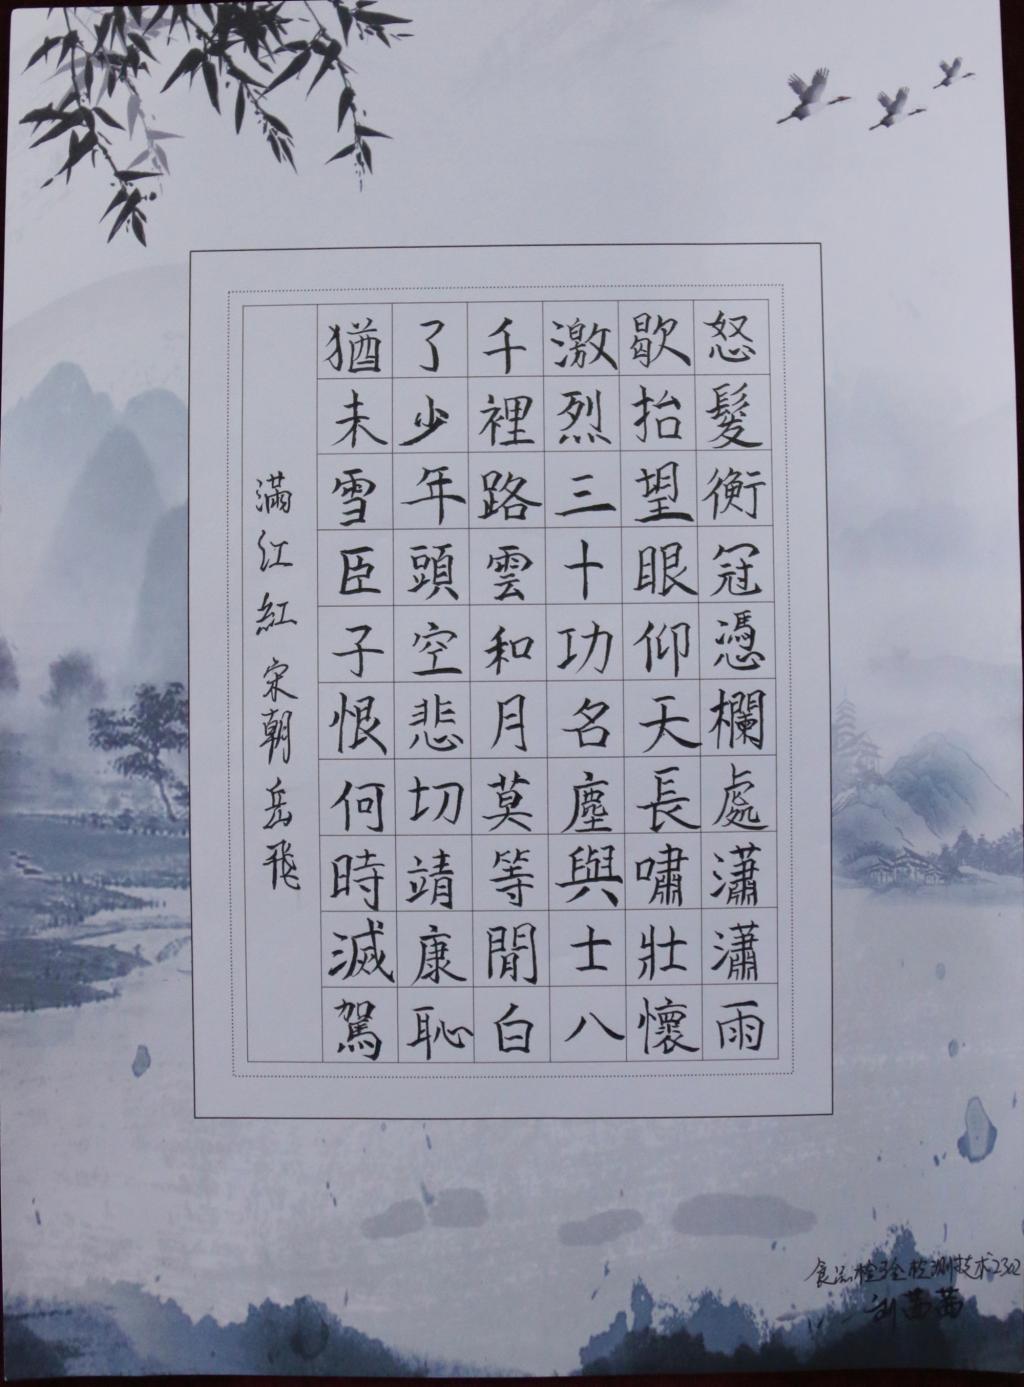 怒髮衝冠憑欄處瀟瀟雨
歇抬望眼仰天長嘯壯懷
激烈三十功名塵與士八
千裡路雲和月莫等閒白
了少年頭空悲切靖康恥
猶未雪臣子恨何時滅駕
滿江紅 宋朝岳飛
食品检验检测技术2302
刘茜茜